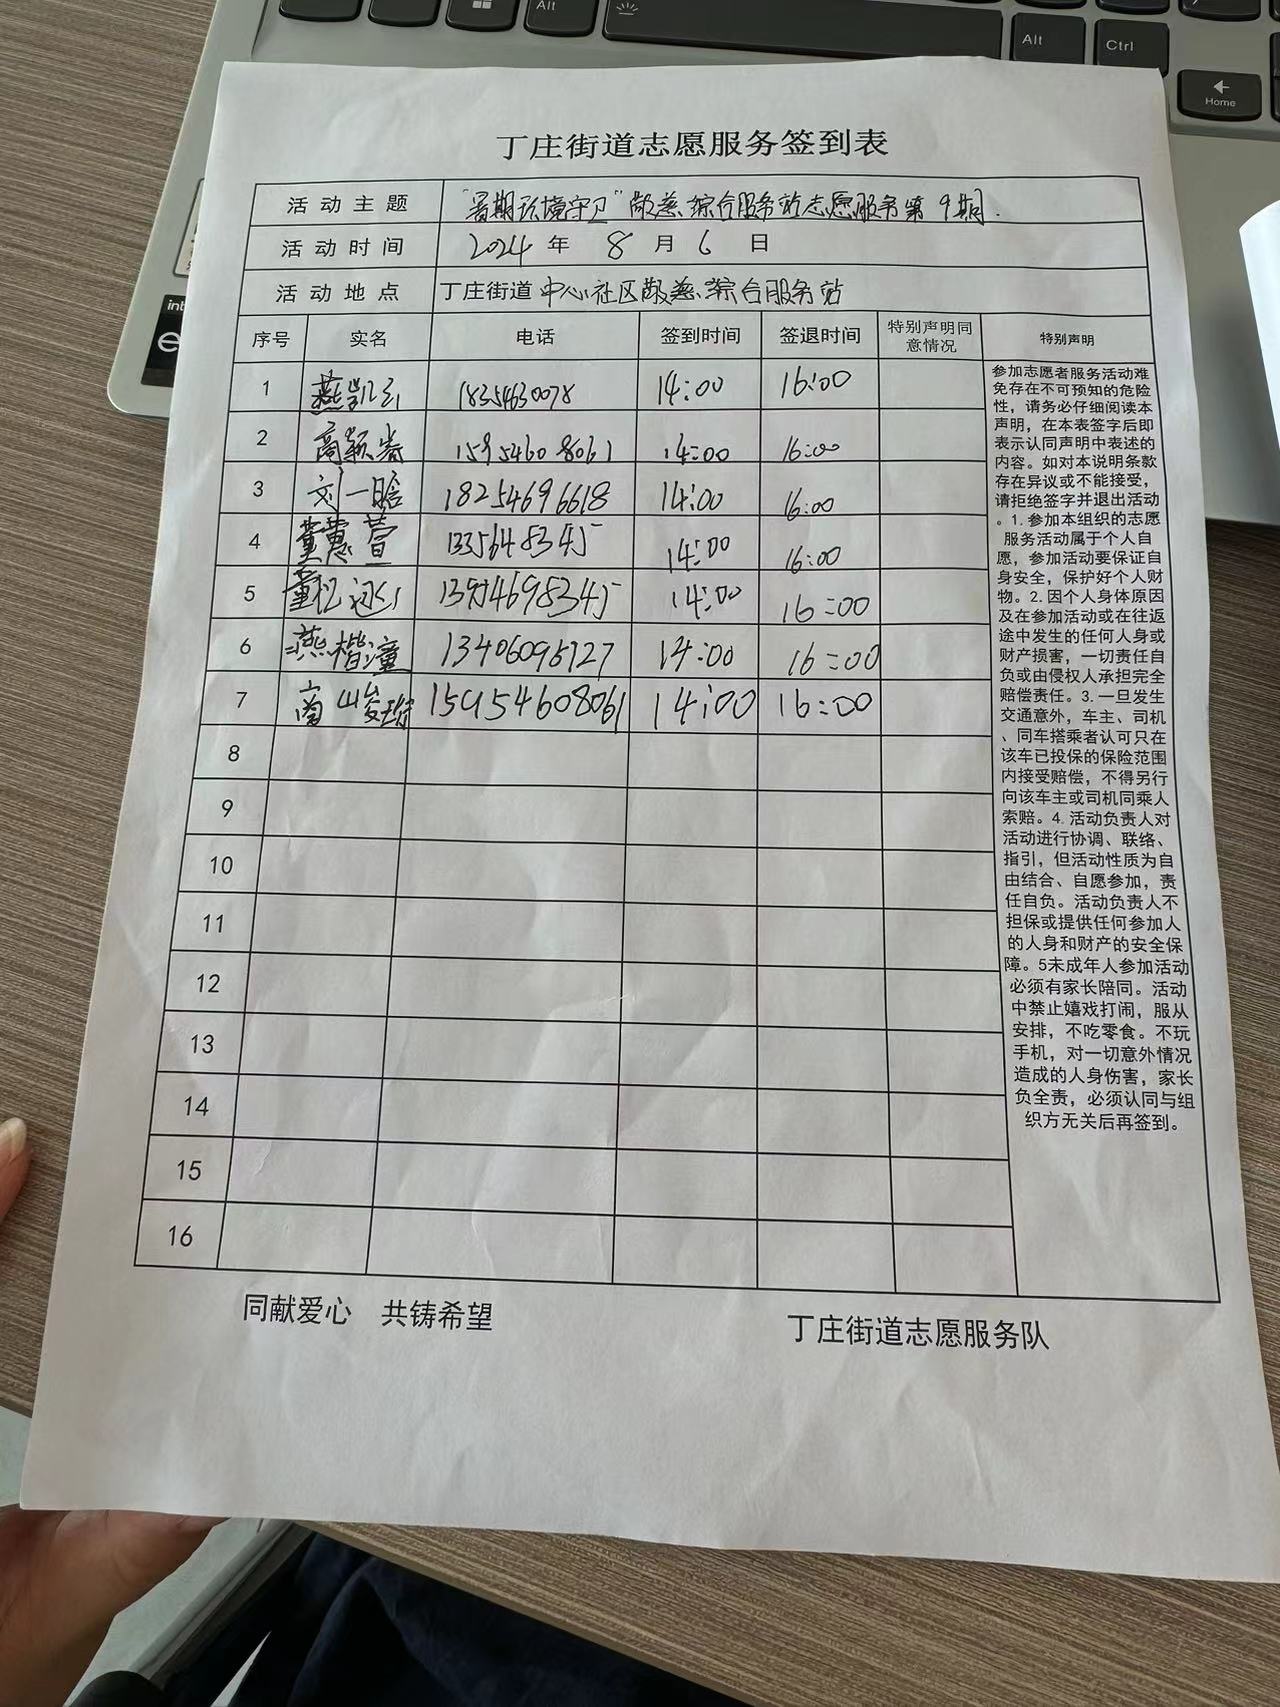 Alt
Alt
Ctrl
Home
丁庄街道志愿服务签到表
活动主题 "暑期环境守卫"敬慈综合服务站志愿服务第9期.
活动时间 2024 年 8 月 6 日
活动地点 丁庄街道 中心社区敬慈综合服务站
序号 实名 电话 签到时间 签退时间 特别声明同意情况 特别声明
1 18354630078 14:00 16:00
2 15954608061 14:00 16:00
3 刘一晗 18254696618 14:00 16:00
4 董惠萱 14:00 16:00
5 14:00 16:00
6 燕楷潼 14:00 16:00
7 15954608061 14:00 16:00
8
9
10
11
12
13
14
15
16
参加志愿者服务活动难
免存在不可预知的危险
性，请务必仔细阅读本
声明，在本表签字后即
表示认同声明中表述的
内容。如对本说明条款
存在异议或不能接受，
请拒绝签字并退出活动
。1. 参加本组织的志愿
服务活动属于个人自
愿，参加活动要保证自
身安全，保护好个人财
物。2. 因个人身体原因
及在参加活动或在往返
途中发生的任何人身或
财产损害，一切责任自
负或由侵权人承担完全
赔偿责任。3. 一旦发生
交通意外，车主、司机
、同车搭乘者认可只在
该车已投保的保险范围
内接受赔偿，不得另行
向该车主或司机同乘人
索赔。4. 活动负责人对
活动进行协调、联络、
指引，但活动性质为自
由结合、自愿参加，责
任自负。活动负责人不
担保或提供任何参加人
的人身和财产的安全保
障。5未成年人参加活动
必须有家长陪同。活动
中禁止嬉戏打闹，服从
安排，不吃零食。不玩
手机，对一切意外情况
造成的人身伤害，家长
负全责，必须认同与组
织方无关后再签到。
同献爱心 共铸希望
丁庄街道志愿服务队